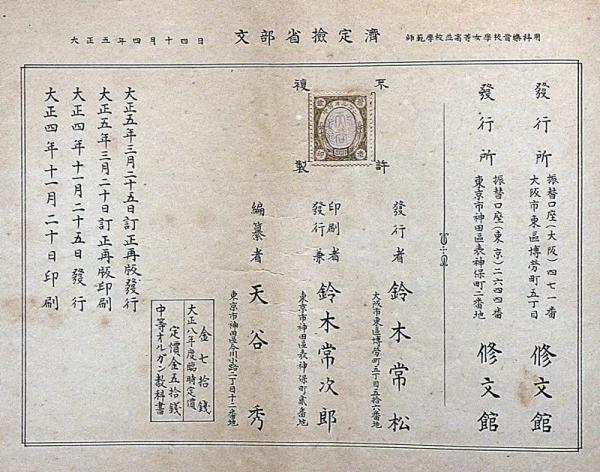 大正五年四月十四日
文部省檢定濟
師範學校並高等女學校音樂科用
大正四年十一月二十日印刷
大正四年十一月二十五日發行
大正五年三月二十日訂正再版印刷
大正五年三月二十五日訂正再版發行
中等オルガン教科書
定價金五拾錢
大正八年度臨時定價
金七拾錢
不許
複製
編纂者 天谷秀
東京市神田區今川小路二丁目十二番地
印刷者兼發行 鈴木常次郎
東京市神田區表神保町貳番地
發行者 鈴木常松
大阪市東區博勞町五丁目五拾八番地
發行所 修文館
東京市神田區表神保町二番地
振替口座(東京)二六四四番
發行所 修文館
大阪市東區博勞町五丁目
振替口座(大阪)四七一番